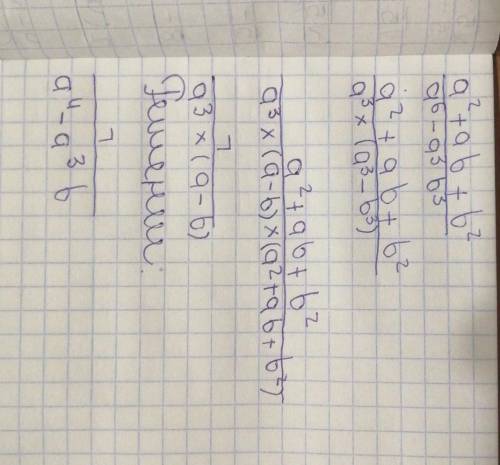 a² + ab + b²
a⁶ - a³b³
a² + ab + b²
a³ × (a³ - b³)
a² + ab + b²
a³ × (a - b) × (a² + ab + b²)
1
a³ × (a - b)
Решении:
1
a⁴ - a³b